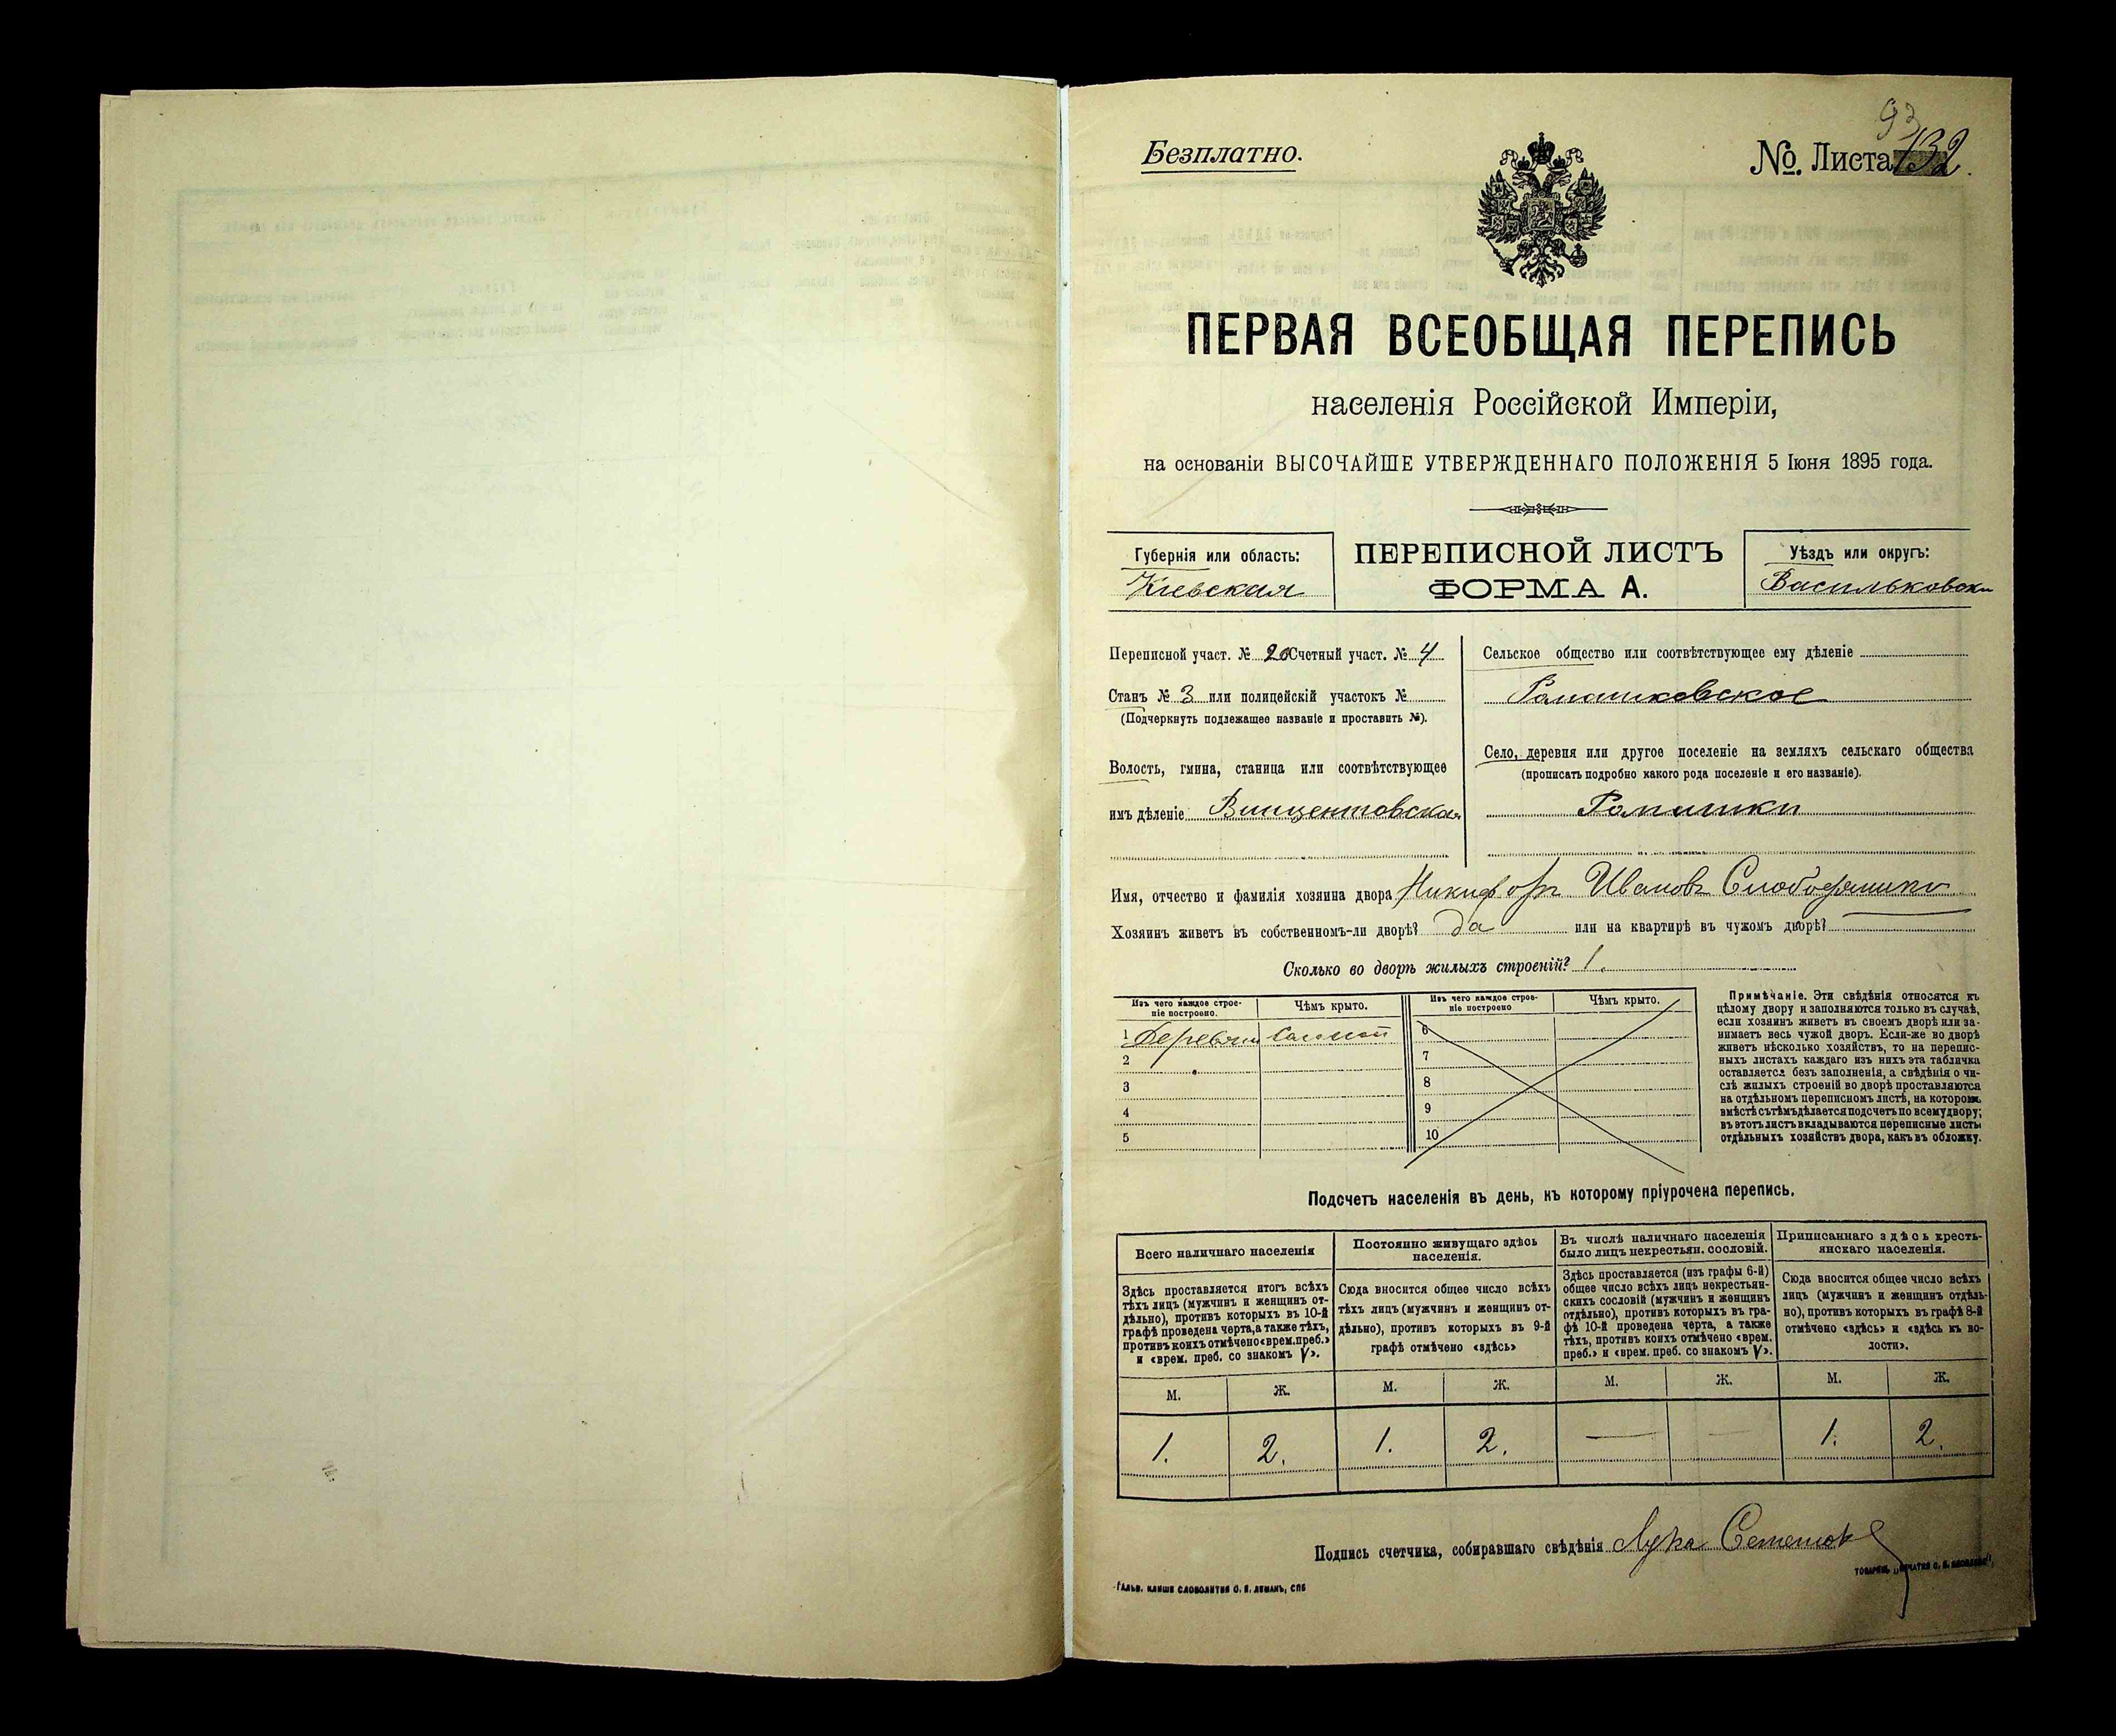 93
Безплатно.
№. Листа 132.
ПЕРВАЯ ВСЕОБЩАЯ ПЕРЕПИСЬ
населенія Россійской Имперіи,
на основаніи ВЫСОЧАЙШЕ УТВЕРЖДЕННАГО ПОЛОЖЕНІЯ 5 Іюня 1895 года.
Губернія или область:
Кіевская
ПЕРЕПИСНОЙ ЛИСТЪ
ФОРМА А.
Уѣздъ или округъ:
Васильковски
Переписной участ. № 20 Счетный участ. № 4
Станъ № 3 или полицейскій участокъ №
(Подчеркнуть подлежащее названіе и проставить №).
Волость, гмина, станица или соотвѣтствующее
имъ дѣленіе Винцентовская
Сельское общество или соотвѣтствующее ему дѣленіе
Ромашковское
Село, деревня или другое поселеніе на земляхъ сельскаго общества
(прописать подробно какого рода поселеніе и его названіе).
Ромашки
Имя, отчество и фамилія хозяина двора Никифоръ Ивановъ
Хозяинъ живетъ въ собственномъ-ли дворѣ? да или на квартирѣ въ чужомъ дворѣ?
Сколько во дворѣ жилыхъ строеній? 1.
Изъ чего каждое строе-
ніе построено.
Чѣмъ крыто.
Изъ чего каждое строе-
ніе построено
Чѣмъ крыто.
1 6
2 7
3 8
4 9
5 10
Примѣчаніе. Эти свѣдѣнія относятся къ
цѣлому двору и заполняются только въ случаѣ,
если хозяинъ живетъ въ своемъ дворѣ или за-
нимаетъ весь чужой дворъ. Если-же во дворѣ
живетъ нѣсколько хозяйствъ, то на перепис-
ныхъ листахъ каждаго изъ нихъ эта табличка
оставляется безъ заполненія, а свѣдѣнія о чи-
слѣ жилыхъ строеній во дворѣ проставляются
на отдѣльномъ переписномъ листѣ, на которомъ
вмѣстѣ съ тѣмъ дѣлается подсчетъ по всему двору;
въ этотъ листъ вкладываются переписные листы
отдѣльныхъ хозяйствъ двора, какъ въ обложку.
Подсчетъ населенія въ день, къ которому пріурочена перепись.
Всего наличнаго населенія
Постоянно живущаго здѣсь
населенія.
Въ числѣ наличнаго населенія
было лицъ некрестьян. сословій.
Приписаннаго здѣсь кресть-
янскаго населенія.
Здѣсь проставляется итогъ всѣхъ
тѣхъ лицъ (мужчинъ и женщинъ от-
дѣльно), противъ которыхъ въ 10-й
графѣ проведена черта, а также тѣхъ,
противъ коихъ отмѣчено «врем. преб.»
и «врем. преб. со знакомъ V».
Сюда вносится общее число всѣхъ
тѣхъ лицъ (мужчинъ и женщинъ от-
дѣльно), противъ которыхъ въ 9-й
графѣ отмѣчено «здѣсь»
Здѣсь проставляется (изъ графы 6-й)
общее число всѣхъ лицъ некрестьян-
скихъ сословій (мужчинъ и женщинъ
отдѣльно), противъ которыхъ въ гра-
фѣ 10-й проведена черта, а также
тѣхъ, противъ коихъ отмѣчено «врем.
преб.» и «врем. преб. со знакомъ V».
Сюда вносится общее число всѣхъ
лицъ (мужчинъ и женщинъ отдѣль-
но), противъ которыхъ въ графѣ 8-й
отмѣчено «здѣсь» и «здѣсь къ во-
лости».
М. Ж. М. Ж. М. Ж. М. Ж.
1. 2. 1. 2. — — 1. 2.
Подпись счетчика, собиравшаго свѣдѣнія Лука
ГАЛЬВ. КЛИШЕ СЛОВОЛИТНИ О. И. ЛЕМАНЪ, СПБ